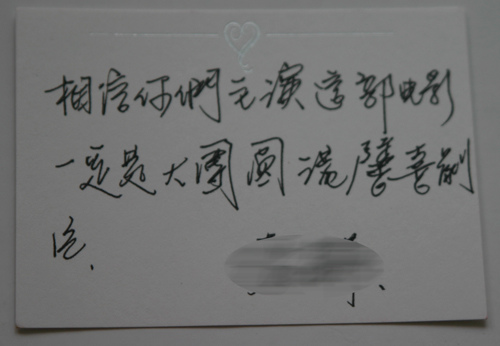 相信你們主演這部电影
一定是大團圓溫馨喜剧
片、